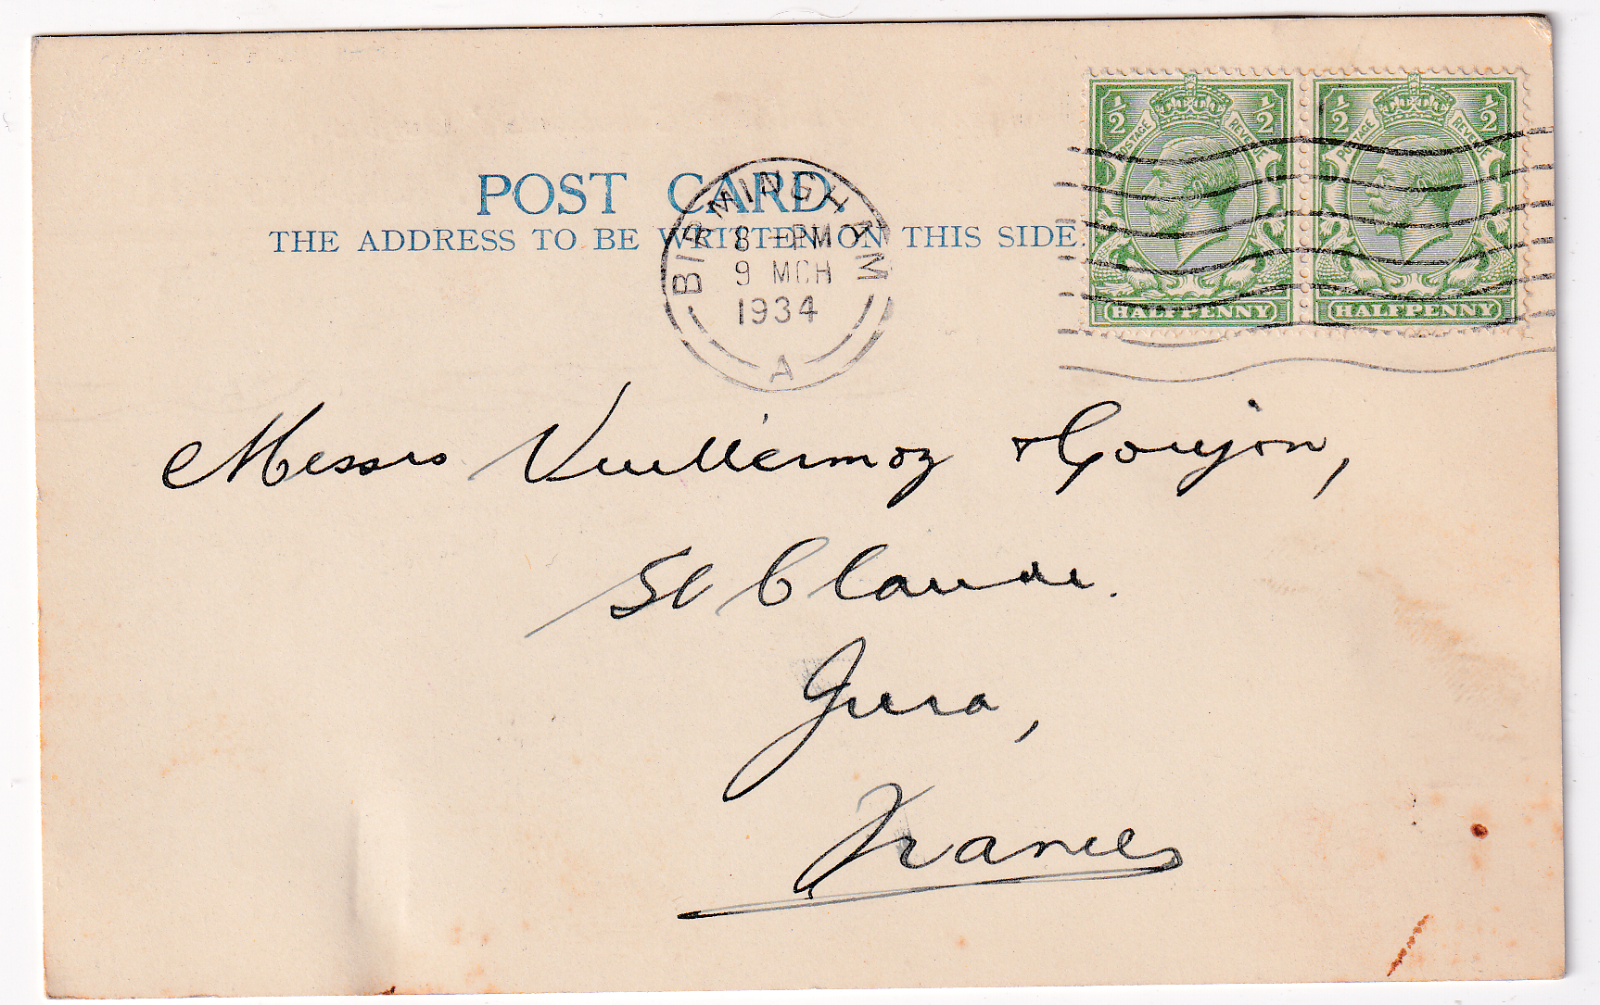 POST CARD.
THE ADDRESS TO BE WRITTEN ON THIS SIDE.
BIRMINGHAM
8 - PM
9 MCH
1934
A
1/2 1/2
POSTAGE REVENUE
HALFPENNY
1/2 1/2
POSTAGE REVENUE
HALFPENNY
Messrs Vuillermoz & Goujon,
St Claude.
Jura,
France